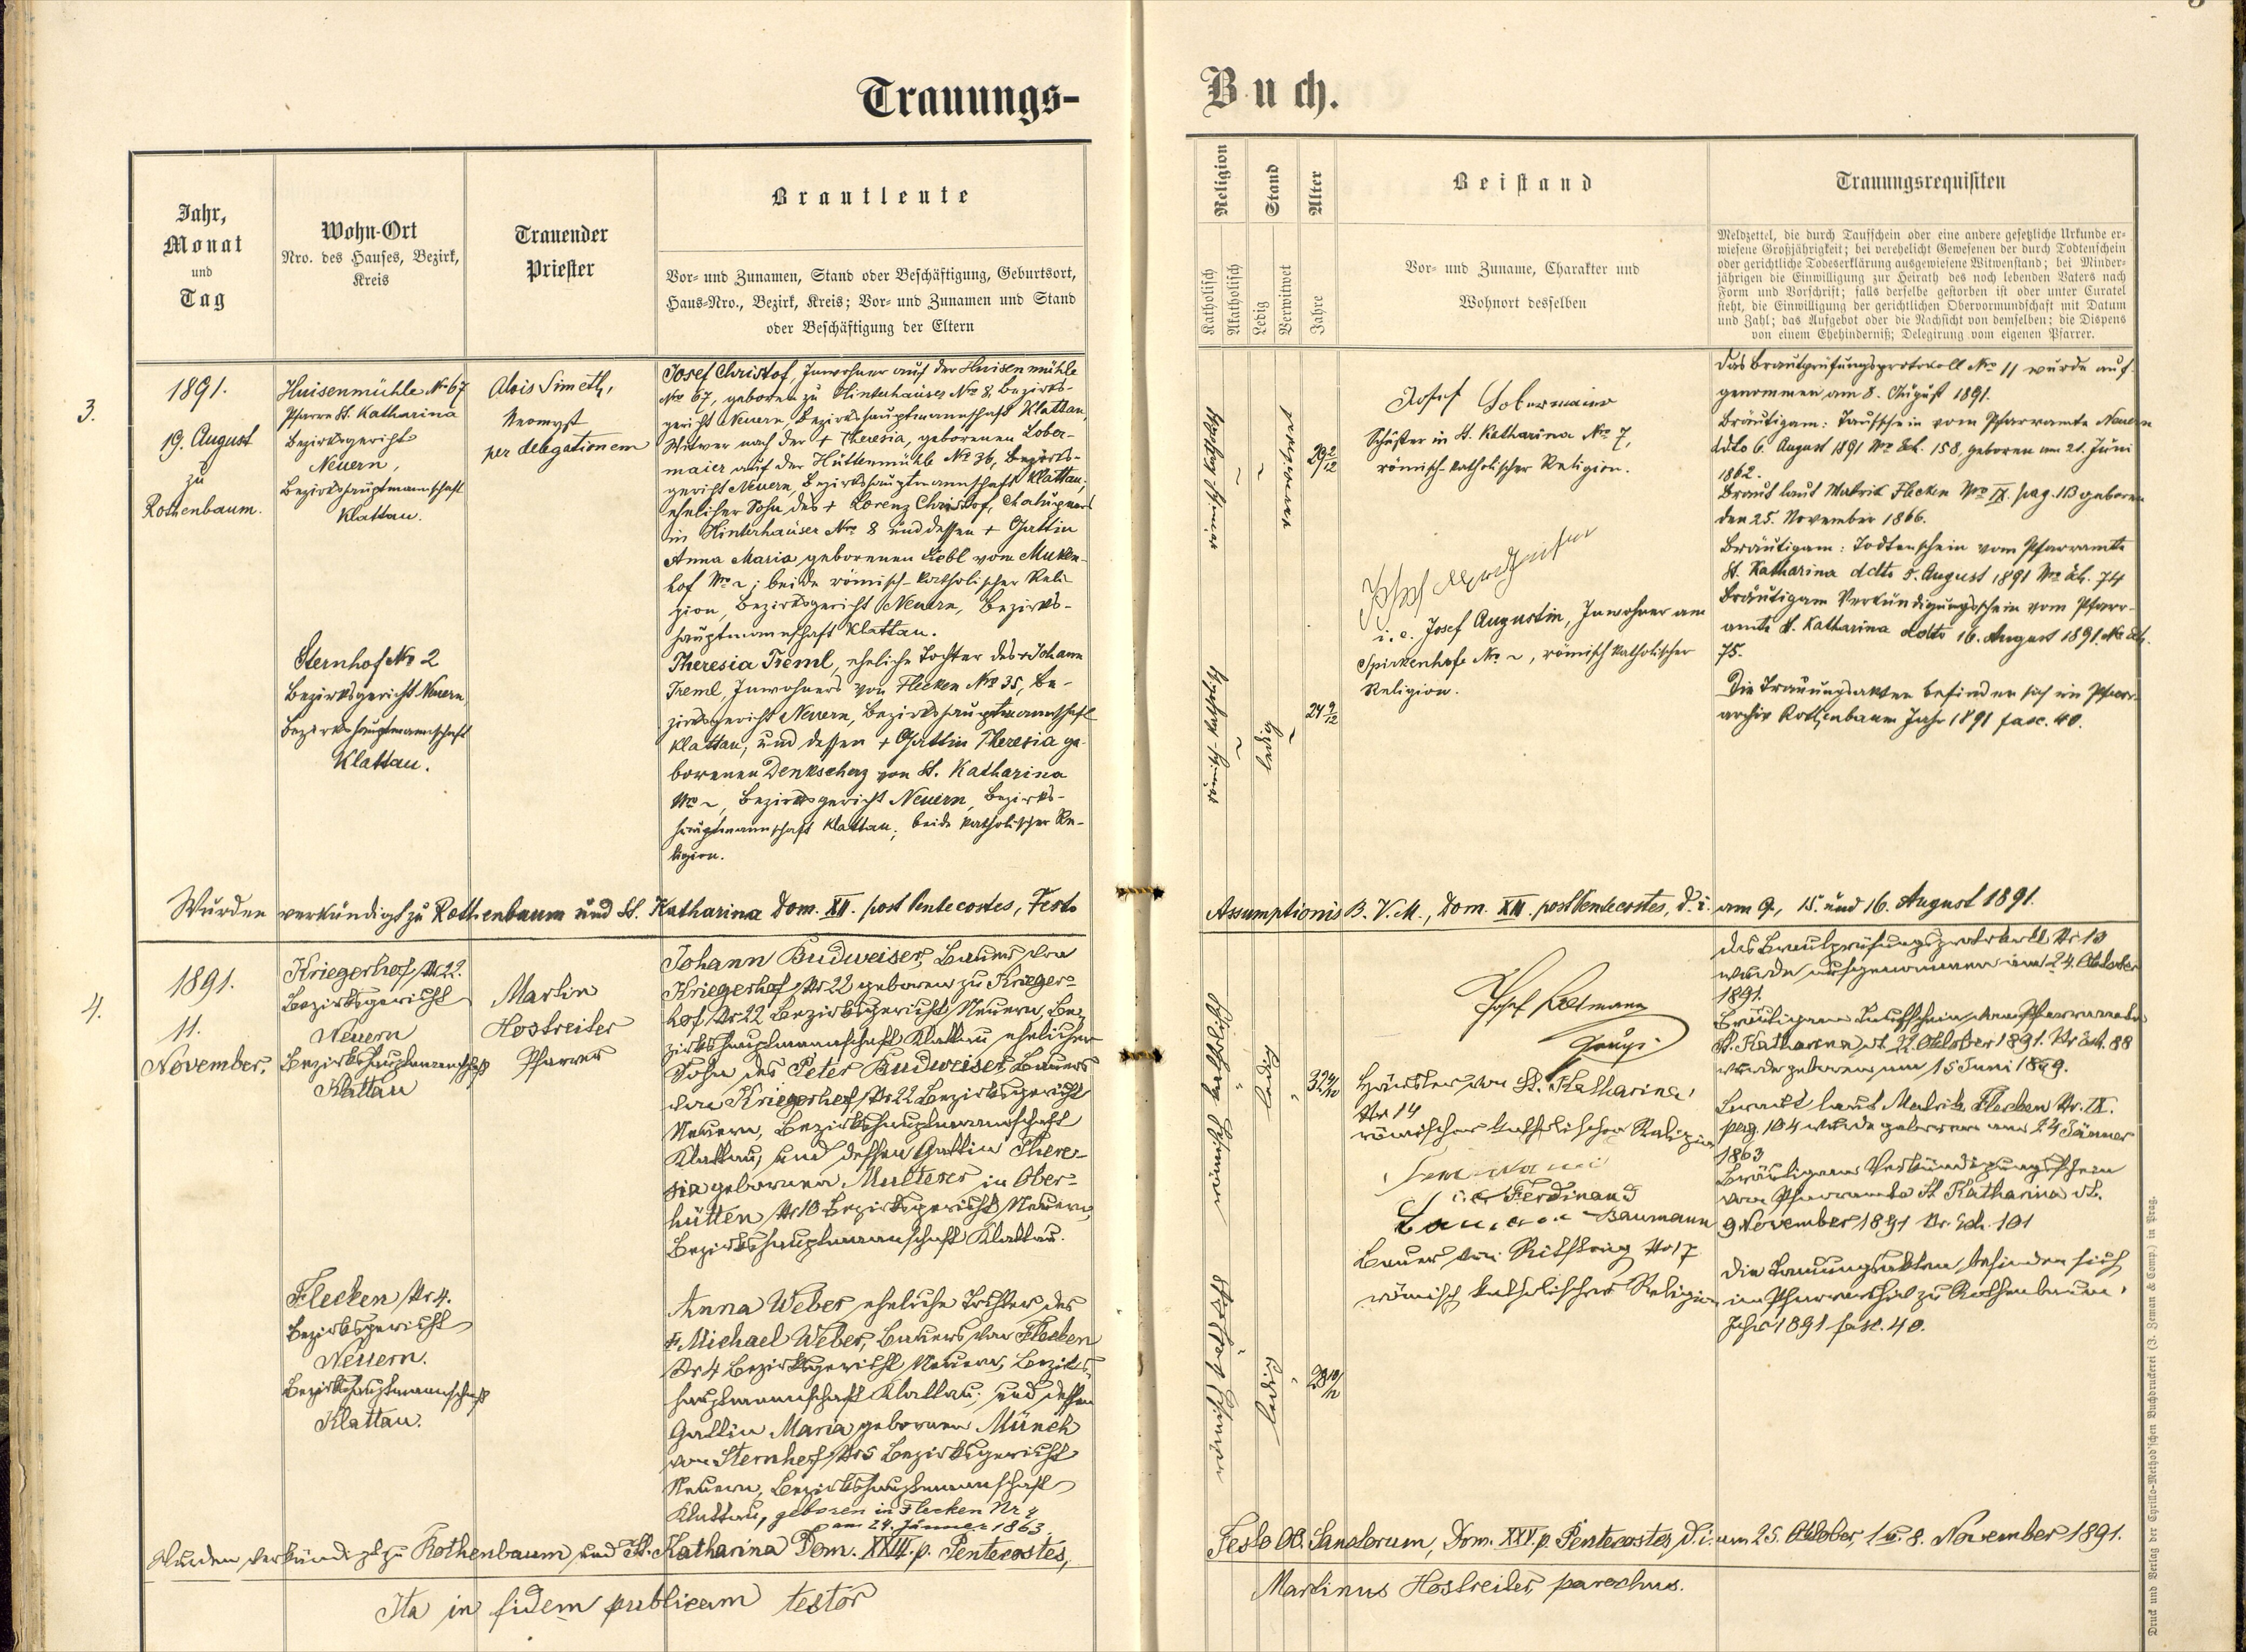 Trauungs-
Buch.
Jahr,
Monat
und
Tag
Wohn-Ort
Nro. des Hauses, Bezirk,
Kreis
Trauender
Priester
Brautleute
Vor- und Zunamen, Stand oder Beschäftigung, Geburtsort,
Haus-Nro., Bezirk, Kreis; Vor- und Zunamen und Stand
oder Beschäftigung der Eltern
Religion
Katholisch
Akatholisch
Stand
Ledig
Verwitwet
Alter
Jahre
Beistand
Vor- und Zuname, Charakter und
Wohnort desselben
Trauungsrequisiten
Meldzettel, die durch Taufschein oder eine andere gesetzliche Urkunde er-
wiesene Großjährigkeit; bei verehelicht Gewesenen der durch Todtenschein
oder gerichtliche Todeserklärung ausgewiesene Witwenstand; bei Minder-
jährigen die Einwilligung zur Heirath des noch lebenden Vaters nach
Form und Vorschrift; falls derselbe gestorben ist oder unter Curatel
steht, die Einwilligung der gerichtlichen Obervormundschaft mit Datum
und Zahl; das Aufgebot oder die Nachsicht von demselben; die Dispens
von einem Ehehinderniß; Delegirung vom eigenen Pfarrer.
3.
1891.
19. August
zu
Rothenbaum.
Huisenmühle No 67
Pfarre St. Katharina
Bezirksgericht
Neuern,
Bezirkshauptmannschaft
Klattau.
Alois Simeth,
Neomyst
per delegationem
Josef Christof, Inwohner auf der Huisenmühle
No 67, geboren zu Hinterhäuser No 8, Bezirks-
gericht Neuern, Bezirkshauptmannschaft Klattau,
Witwer nach der + Theresia, geborenen Lober-
maier auf der Hüttenmühle No 36, Bezirks-
gericht Neuern, Bezirkshauptmannschaft Klattau;
ehelicher Sohn des + Lorenz Christof, Chalupners
in Hinterhäuser Nro 8 und dessen + Gattin
Anna Maria geborenen Liebl vom Muken-
hof No ~; beide römisch-katholischer Reli-
gion, Bezirksgericht Neuern, Bezirks-
hauptmannschaft Klattau.
Sternhof No 2
Bezirksgericht Neuern,
Bezirkshauptmannschaft
Klattau.
Theresia Treml, eheliche Tochter des + Johann
Treml, Inwohners von Flecken No 35, Be-
zirksgericht Neuern, Bezirkshauptmannschaft
Klattau, und dessen + Gattin Theresia ge-
borenen Denkscherz von St. Katharina
No ~, Bezirksgericht Neuern, Bezirks-
hauptmannschaft Klattau; beide katholischer Re-
ligion.
römisch-katholisch
~
~
verwitwet
29 2/12
römisch-katholisch
~
ledig
~
24 9/12
Josef Lobermaier
Schuster in St. Katharina No 7,
römisch-katholischer Religion.
i. e. Josef Augustin, Inwohner am
Spirkenhofe No ~, römisch katholischer
Religion.
Das Brautprüfungsprotokoll No 11 wurde auf-
genommen am 8. August 1891.
Bräutigam: Taufschein vom Pfarramte Neuern
ddto 6. August 1891 No Exh. 158, geboren am 21. Juni
1862.
Braut laut Matrik Flecken Nro IX. pag. 113 geboren
den 25. November 1866.
Bräutigam: Todtenschein vom Pfarramte
St. Katharina ddto 5. August 1891 No Exh. 74
Bräutigam Verkündigungsschein vom Pfarr-
amte St. Katharina ddto 16. August 1891. No Exh.
75.
Die Trauungsakten befinden sich im Pfarr-
archiv Rothenbaum Jahr 1891 fasc. 40.
Wurden verkündigt zu Rothenbaum und St. Katharina Dom. XII. post Pentecostes, Festo
Assumptionis B. V. M., Dom. XIII. post Pentecostes, d. i. am 9., 15. und 16. August 1891.
4.
1891.
11.
November.
Kriegerhof Nr 22.
Bezirksgericht
Neuern
Bezirkshauptmannschaft
Klattau
Martin
Hostreiter
Pfarrer
Johann Budweiser, Bauer von
Kriegerhof Nr 22 geboren zu Krieger-
hof Nr 22 Bezirksgericht Neuern, Be-
zirkshauptmannschaft Klattau ehelicher
Sohn des Peter Budweiser, Bauers
von Kriegerhof Nr 22 Bezirksgericht
Neuern, Bezirkshauptmannschaft
Klattau, und dessen Gattin There-
sia gebornen Multerer in Ober-
hütten Nr 10 Bezirksgericht Neuern,
Bezirkshauptmannschaft Klattau.
Flecken Nr 4.
Bezirksgericht
Neuern.
Bezirkshauptmannschaft
Klattau.
Anna Weber, eheliche Tochter des
+ Michael Weber, Bauers von Flecken
Nr 4 Bezirksgericht Neuern, Bezirks-
hauptmannschaft Klattau; und dessen
Gattin Maria gebornen Münch
von Sternhof Nr 5 Bezirksgericht
Neuern, Bezirkshauptmannschaft
Klattau, geboren in Flecken Nr 4
am 24. Jänner 1863.
römisch katholisch
ledig
32 4/12
römisch katholisch
ledig
28 10/12
Josef
Häusler von St. Katharina
Nr 14
römischer katholischer Religion
i. e. Ferdinand
Baumann
Bauer von Nr 17
römisch katholischer Religion
Das Brautprüfungsprotokoll Nr 13
wurde aufgenommen am 24. Oktober
1891.
Bräutigam Taufschein vom Pfarramte
St. Katharina dt. 22. Oktober 1891. Nr Exh. 88
wurde geboren am 15 Juni 1859.
Braut laut Matrik Flecken Nr. IX.
pag. 104 wurde geboren am 24 Jänner
1863
Bräutigam Verkündigungsschein
vom Pfarramte St Katharina dt.
9 November 1891 Nr. Exh. 101
Die Trauungsakten befinden sich
im Pfarrarchiv zu Rothenbaum,
Jahr 1891 fasc. 40.
Wurden verkündigt zu Rothenbaum und St. Katharina Dom. XXIII. p. Pentecostes,
Festo OO. Sanctorum, Dom. XXV. p. Pentecostes, d. i. am 25. Oktober, 1. u. 8. November 1891.
Ita in fidem publicam testor
Martinus Hostreiter, parochus.
Druck und Verlag der Cyrillo-Method'schen Buchdruckerei (J. Zeman & Comp.) in Prag.